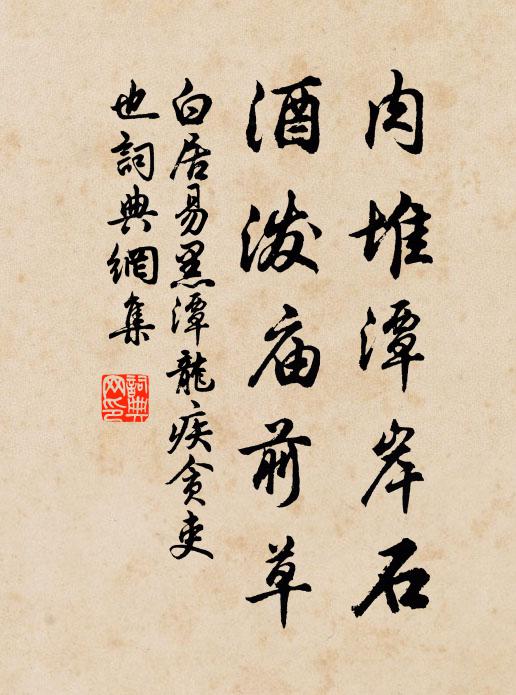 肉堆潭岸石
酒泼庙前草
白居易黑潭龍疾贪吏
也詞典網集
詞典
网印